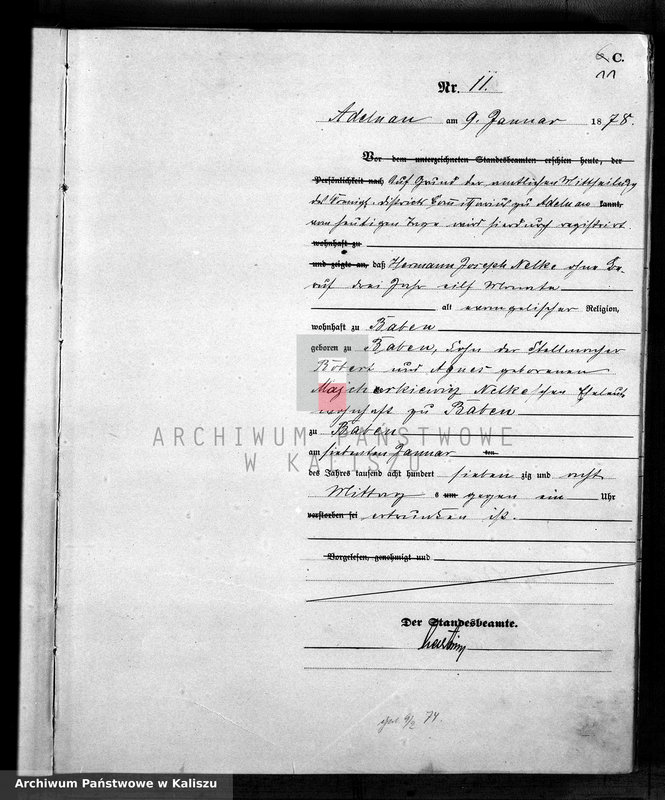 C.
11
Nr. 11.
Adelnau am 9. Januar 1878.
Vor dem unterzeichneten Standesbeamten erschien heute, der
Persönlichkeit nach Auf Grund der amtlichen Mittheilung
des Königl. Districts Commissarius zu Adelnau kannt,
vom heutigen Tage wird hierdurch registrirt
wohnhaft zu
und zeigte an, daß Hermann Joseph Nelke ohne
drei Jahr elf Monate
alt evangelischer Religion,
wohnhaft zu Baben
geboren zu Baben, Sohn der Stellmacher
Robert und Agnes geborenen
Nelke'schen Eheleute
wohnhaft zu Baben
zu Baben
am siebenten Januar ten
des Jahres tausend acht hundert sieben zig und acht
Mittags um gegen ein Uhr
verstorben sei ertrunken ist.
Vorgelesen, genehmigt und
Der Standesbeamte.
ARCHIWUM PAŃSTWOWE
W KALISZU
Archiwum Państwowe w Kaliszu